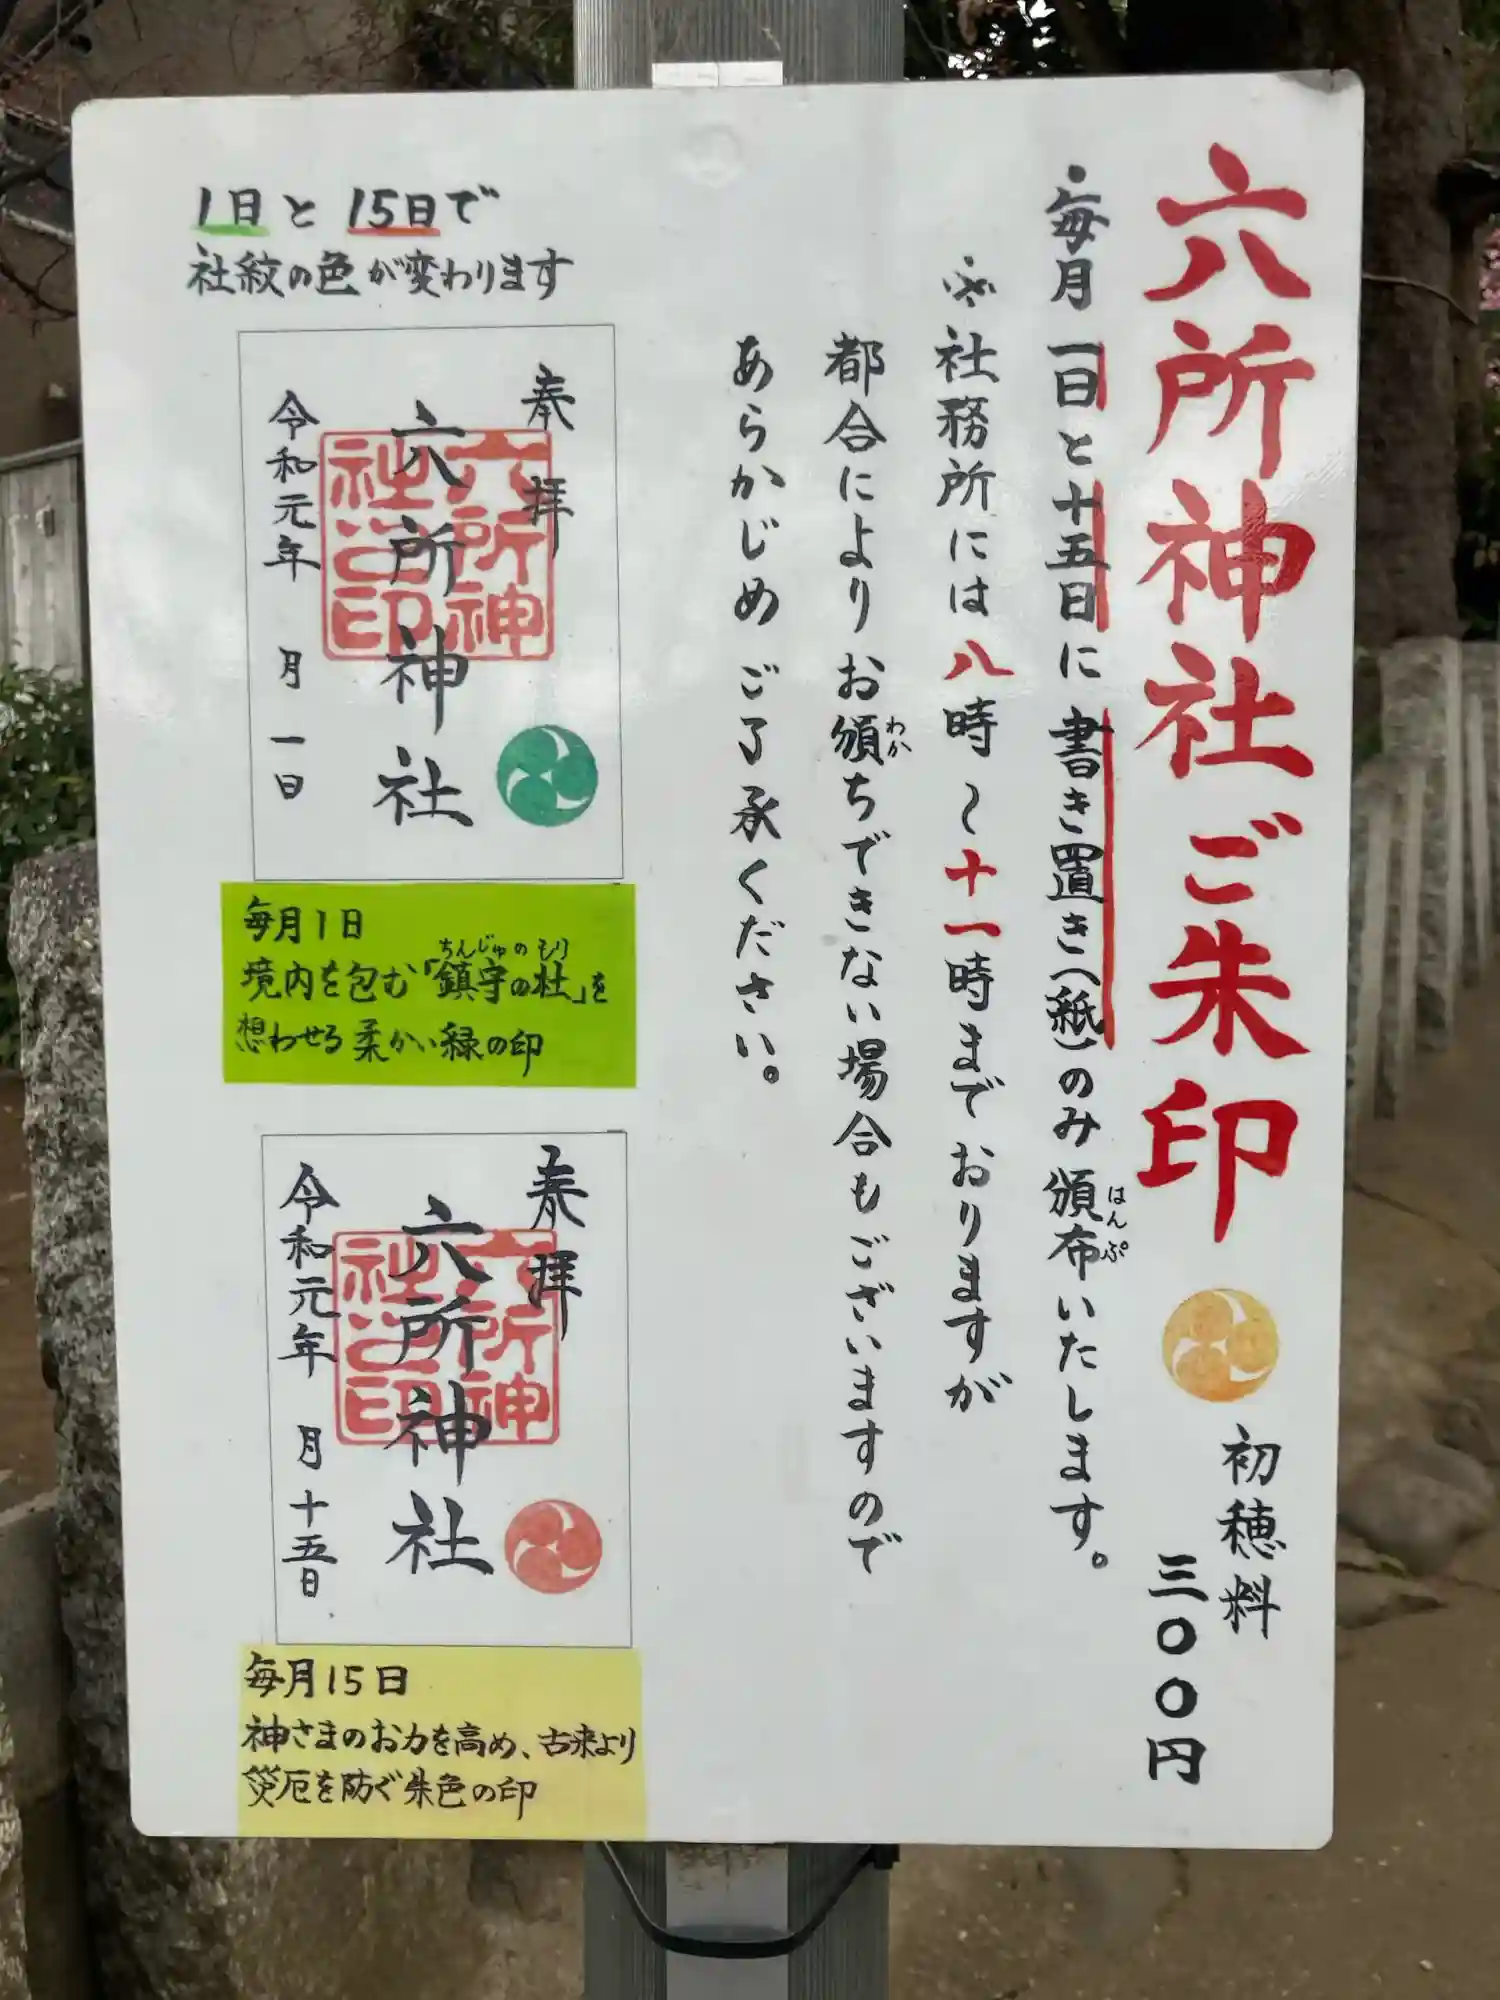 六所神社ご朱印
初穂料
三〇〇円
毎月一日と十五日に書き置き(紙)のみ頒布いたします。
はんぷ
※社務所には八時〜十一時までおりますが
都合によりお頒ちできない場合もございますので
わか
あらかじめご了承ください。
1日と15日で
社紋の色が変わります
奉拝
六所神社
六所神社之印
令和元年 月一日
毎月1日
ちんじゅのもり
境内を包む「鎮守の杜」を
想わせる柔かい緑の印
奉拝
六所神社
六所神社之印
令和元年 月十五日
毎月15日
神さまのお力を高め、古来より
災厄を防ぐ朱色の印